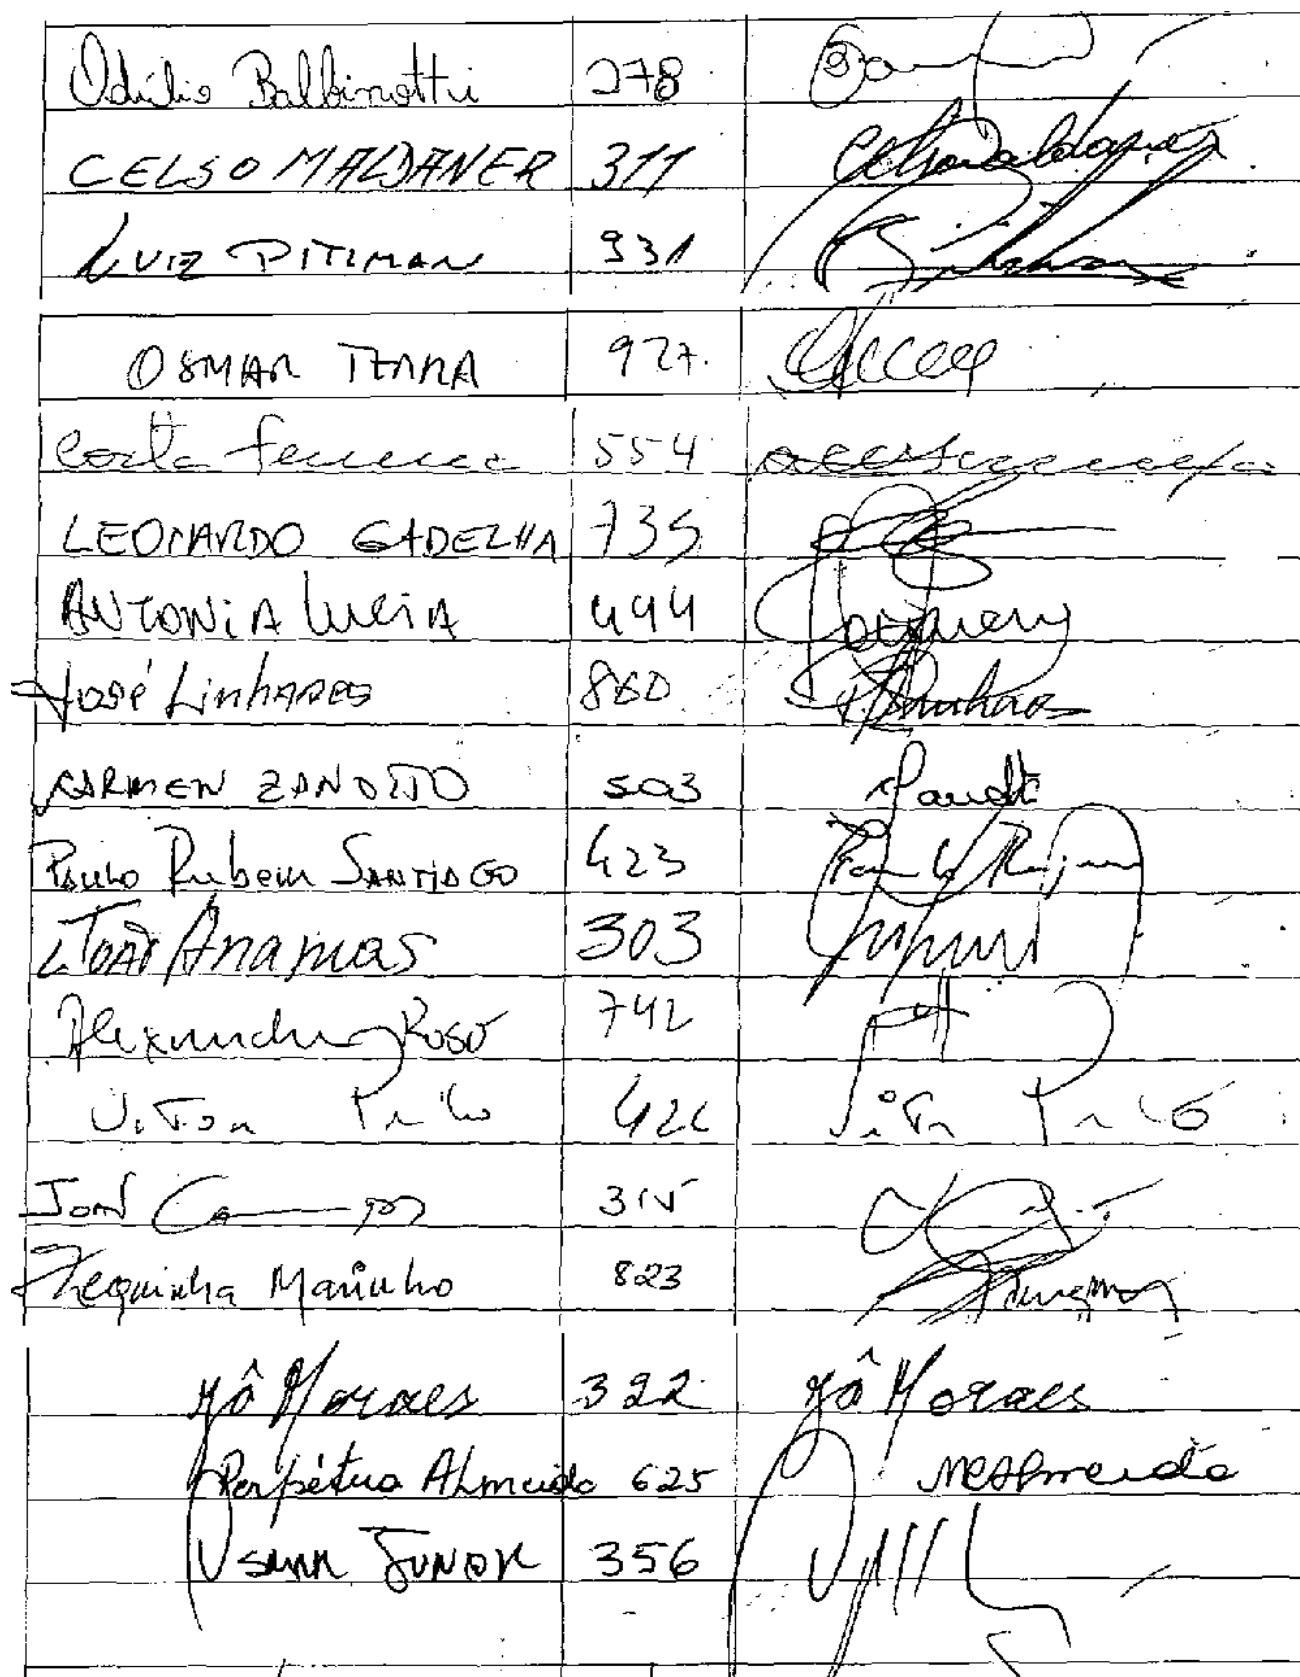 Odílio Balbinotti 278
CELSO MALDANER 311 Celso Maldaner
LUIZ PITIMAN 931
OSMAR TERRA 927.
Costa Ferreira 554
LEONARDO GADELHA 735
ANTONIA LUCIA 444
José LinhARES 860 P. Linhares
CARMEN ZANOTTO 503
PAULO Rubem SANTIAGO 423 Paulo Rubem
João Ananias 303
Alexandre Roso 742
Vitor Paulo 422 Vitor Paulo
João Campos 315
Zequinha Marinho 823
Jô Moraes 322 Jô Moraes
Perpétua Almeida 625 MPAlmeida
OSMAR JUNIOR 356